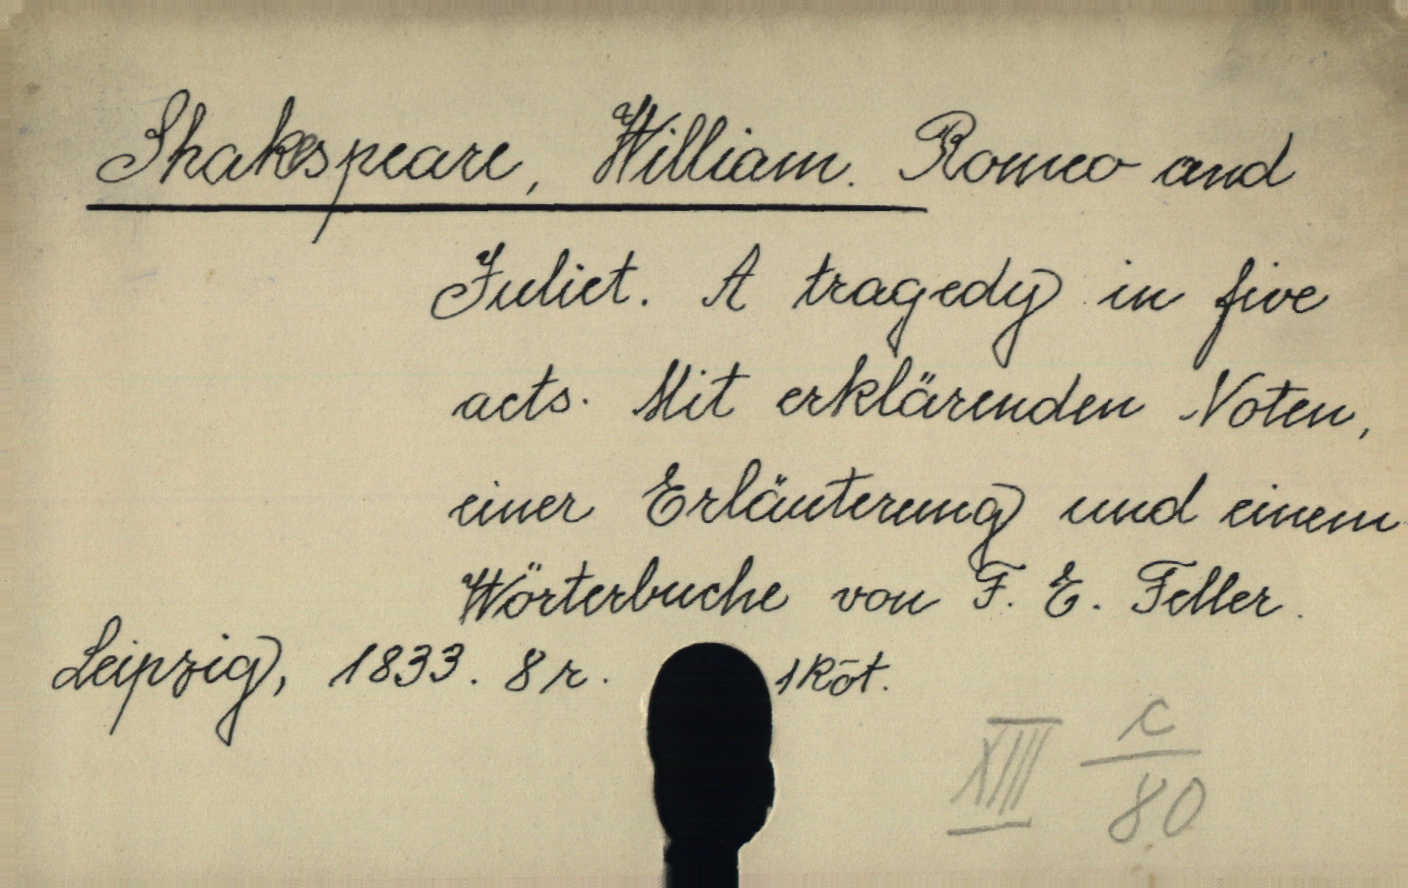 Shakespeare, William. Romeo and
Juliet. A tragedy in five
acts. Mit erklärenden Noten,
einer Erläuterung und einem
Wörterbuche von F. E. Feller.
Leipzig, 1833. 8 r. 1 Köt.
XIII c/80